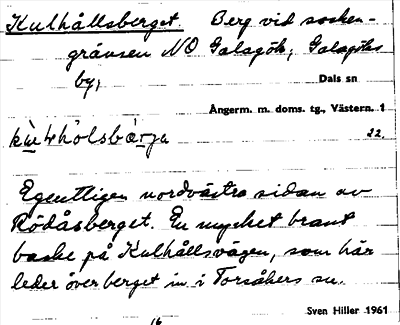 Kulhållsberget. Berg vid socken-
gränsen NO Galasjök, Galasjöks
by,
Dals sn
Ångerm. m. doms. tg., Västern. 1
22.
Egentligen nordvästra sidan av
Rödåsberget. En mycket brant
backe på Kulhållsvägen, som här
leder över berget in i Torsåkers sn.
Sven Hiller 1961